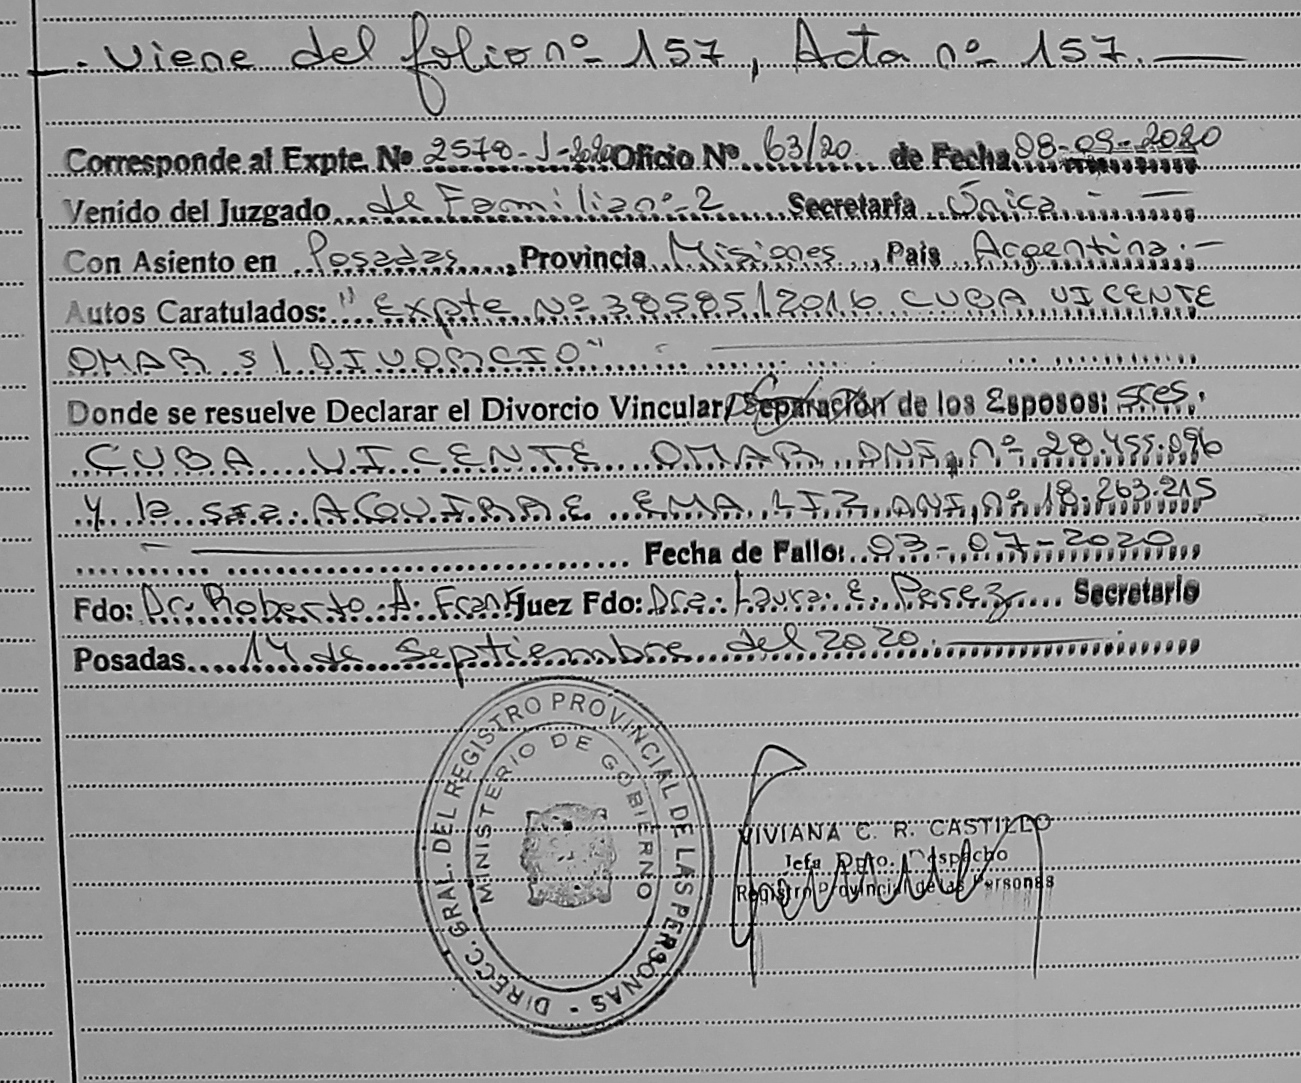 . Viene del folio nº 157, Acta nº 157.
Corresponde al Expte. Nº 2578-J-2020 Oficio Nº 63/20 de Fecha 08-09-2020
Venido del Juzgado de Familia nº 2 Secretaría Única
Con Asiento en Posadas, Provincia Misiones, País Argentina.-
Autos Caratulados: "Expte Nº 38585/2016 CUBA VICENTE
OMAR s/ DIVORCIO"
Donde se resuelve Declarar el Divorcio Vincular/Separación de los Esposos: sres.
CUBA VICENTE OMAR DNI, nº 28.455.096
y la sra. AGUIRRE EMA LIZ DNI, nº 18.263.215
Fecha de Fallo: 03-07-2020
Fdo: Dr. Roberto A. Frank Juez Fdo: Dra. Laura E. Perez Secretario
Posadas 14 de Septiembre del 2020.
DIRECC. GRAL. DEL REGISTRO PROVINCIAL DE LAS PERSONAS -
MINISTERIO DE GOBIERNO
VIVIANA C. R. CASTILLO
Jefa Dpto. Despacho
Registro Provincial de las Personas